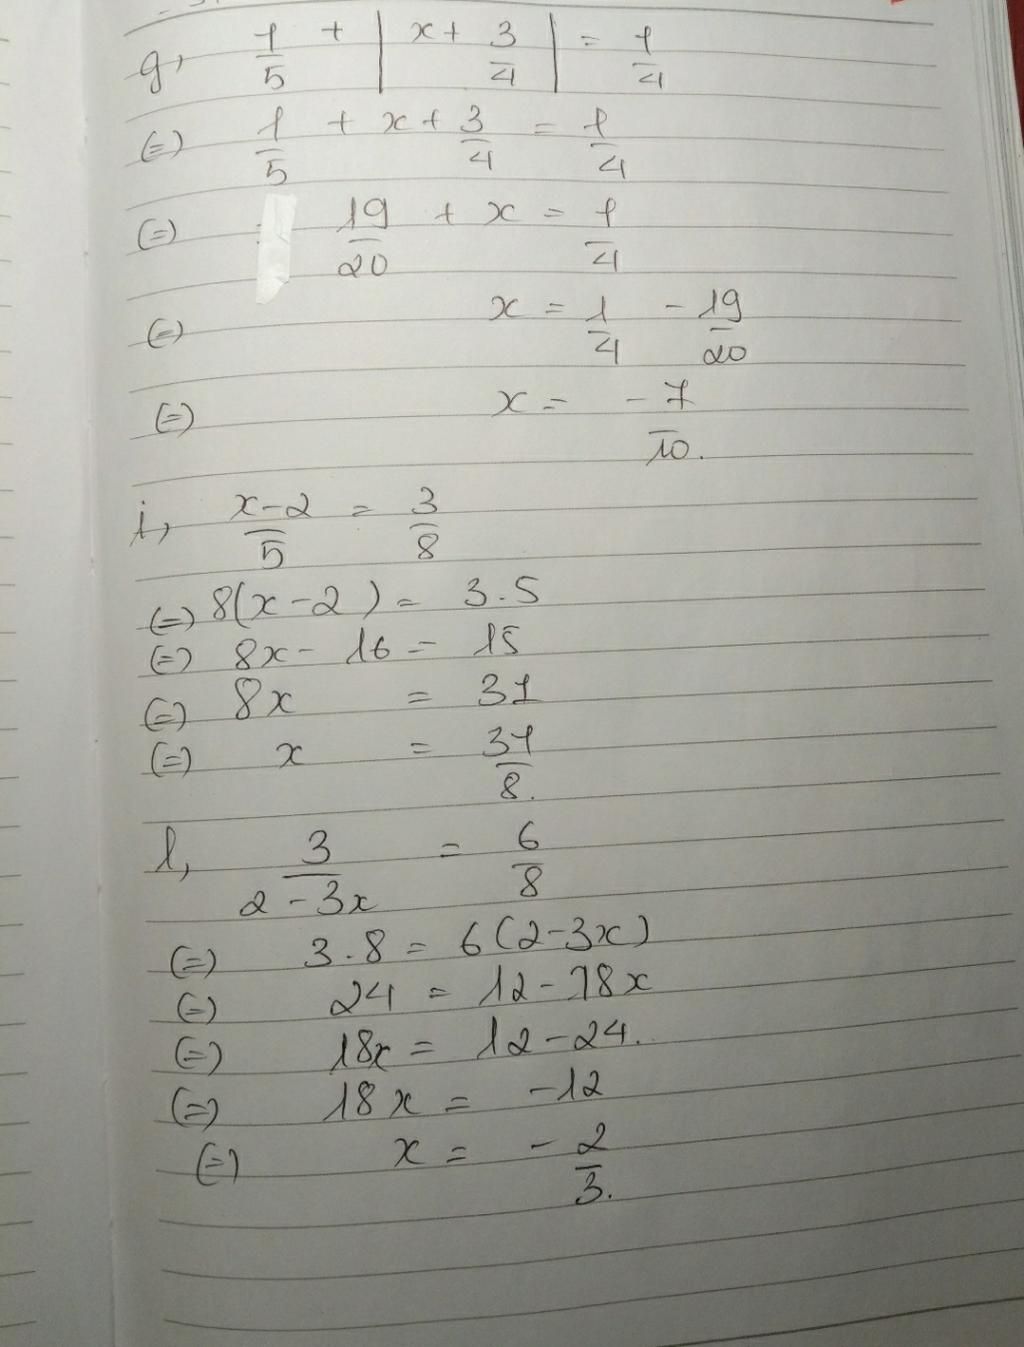 g, 1/5 + | x + 3/4 | = 1/4
(=) 1/5 + x + 3/4 = 1/4
(=) 19/20 + x = 1/4
(=) x = 1/4 - 19/20
(=) x = -7/10.
i, x-2/5 = 3/8
(=) 8(x-2) = 3.5
(=) 8x - 16 = 15
(=) 8x = 31
(=) x = 31/8.
l, 3/2-3x = 6/8
(=) 3.8 = 6(2-3x)
(=) 24 = 12-18x
(=) 18x = 12-24.
(=) 18x = -12
(=) x = -2/3.